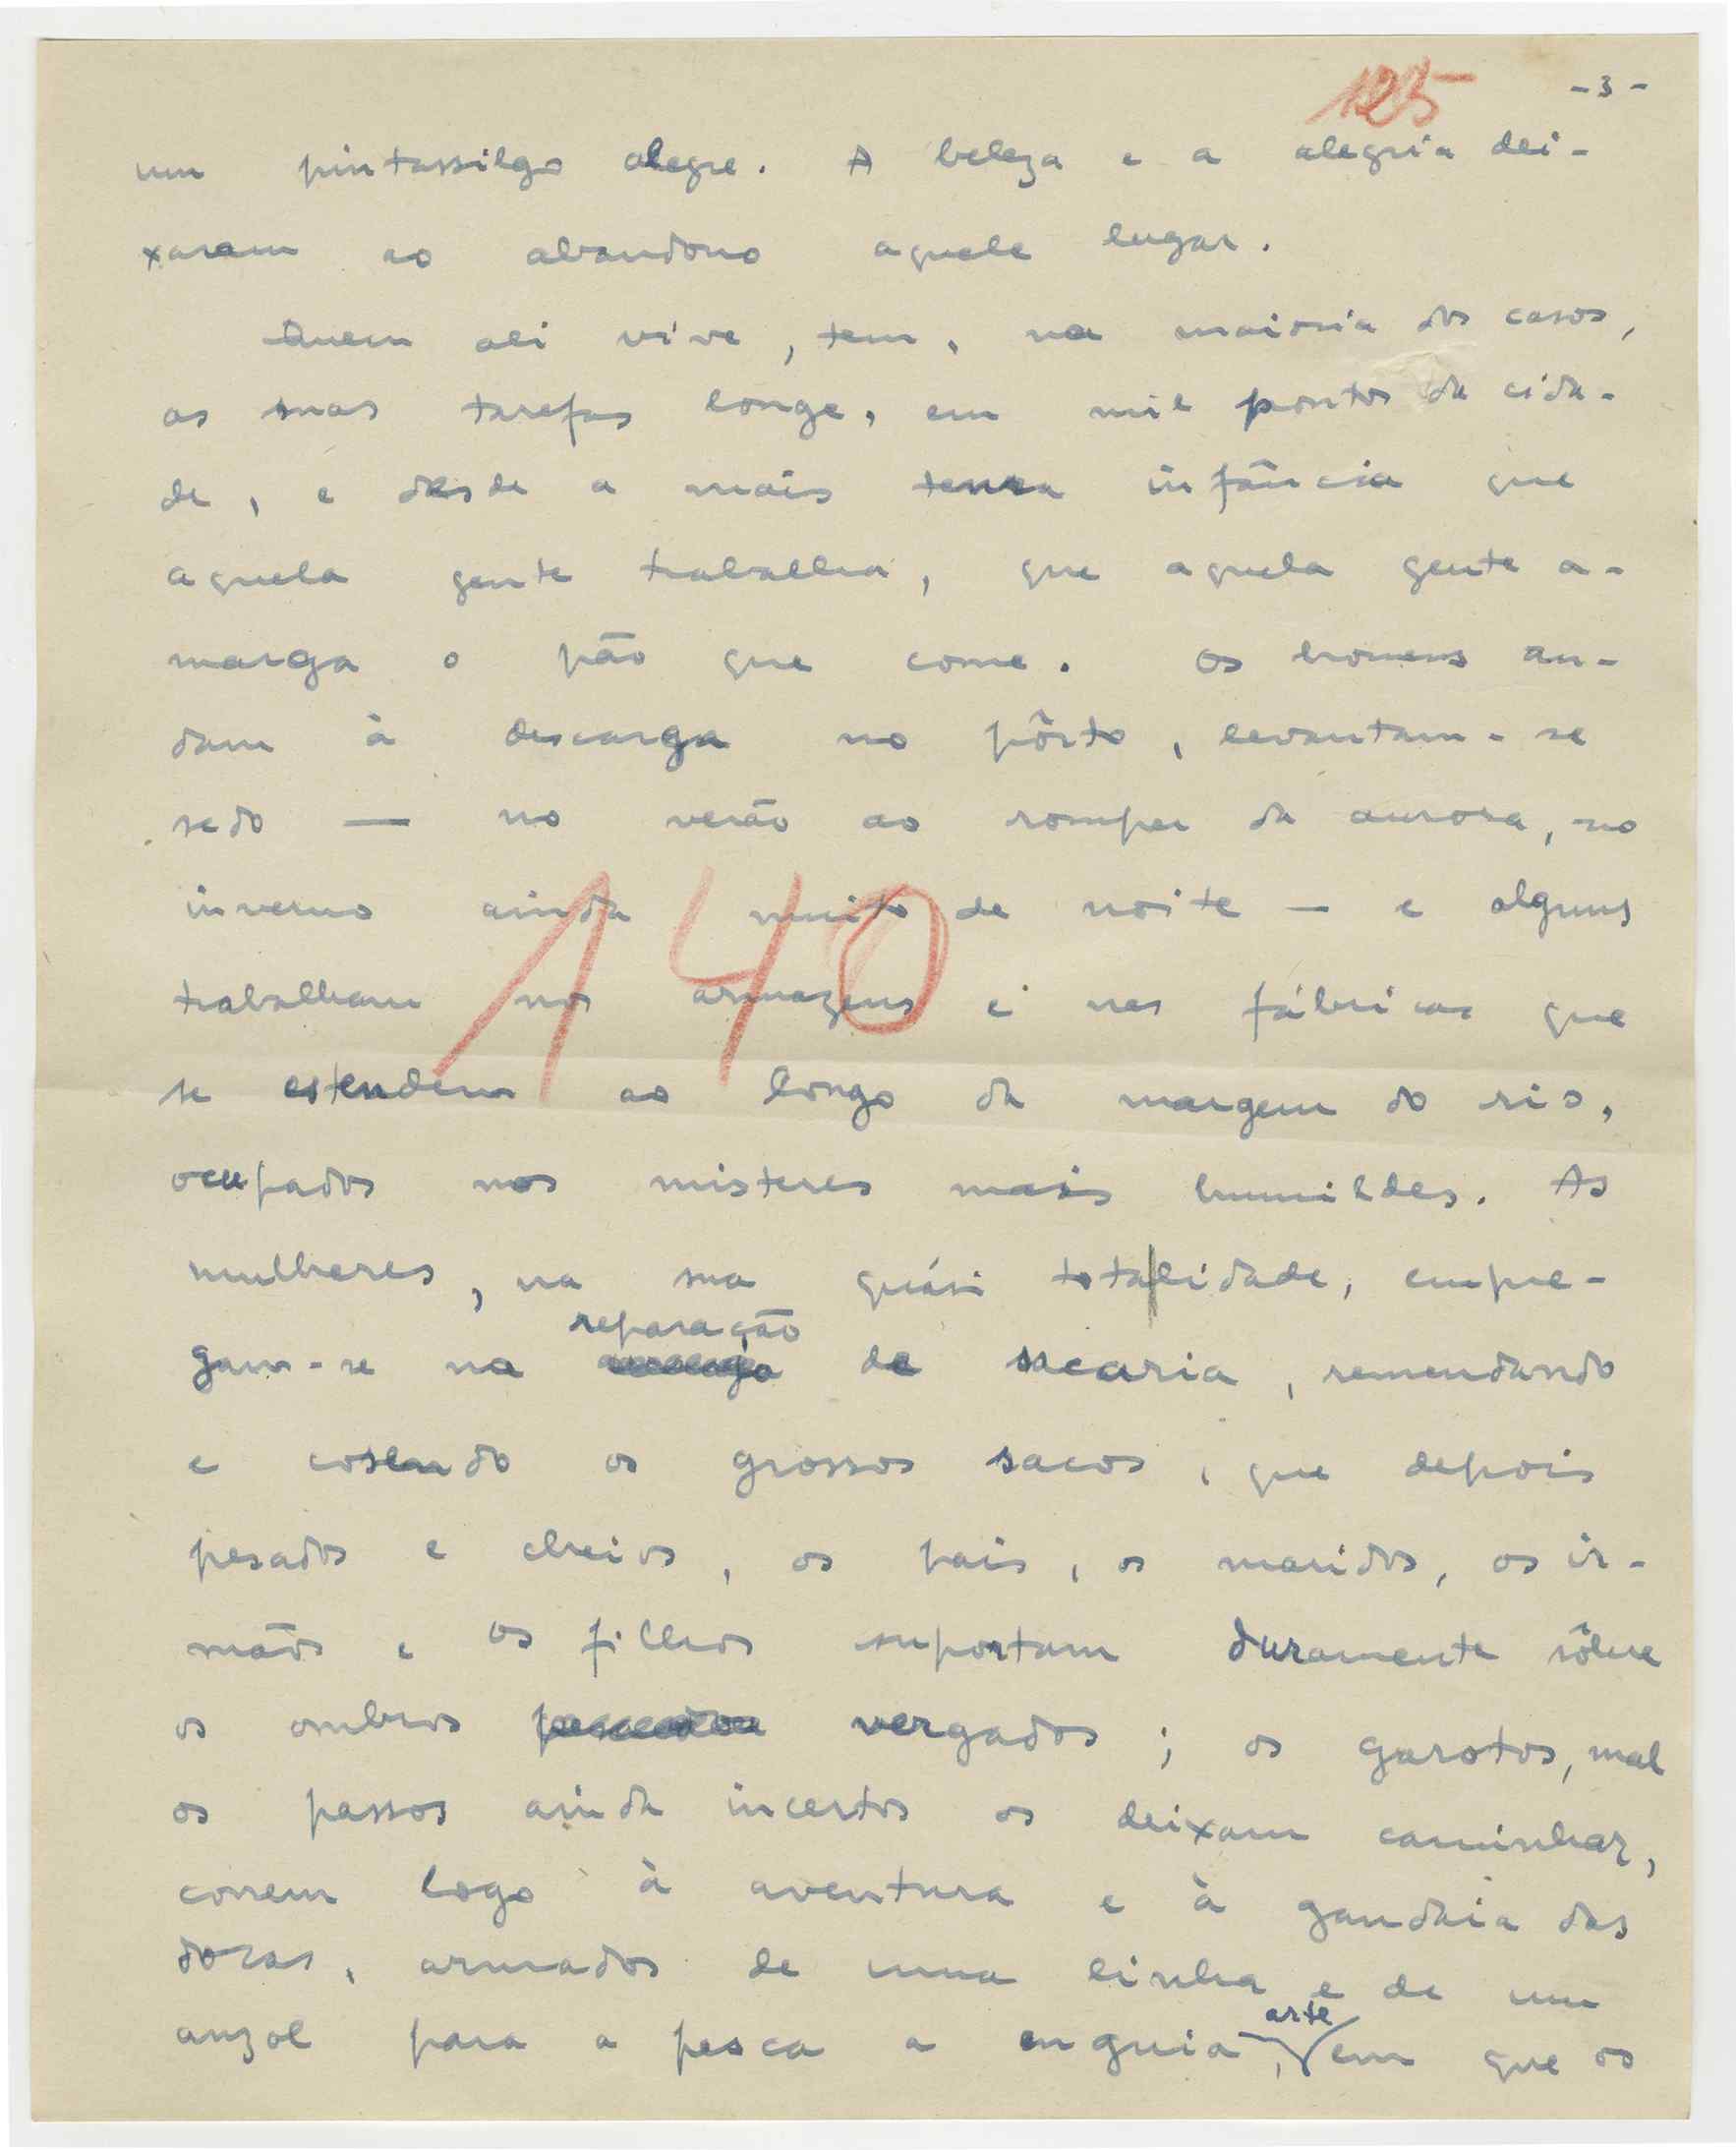 125
- 3 -
um pintassilgo alegre. A beleza e a alegria dei-
xaram ao abandono aquele lugar.
Quem ali vive, tem, na maioria dos casos,
as suas tarefas longe, em mil pontos da cida-
de, e desde a mais tenra infância que
aquela gente trabalha, que aquela gente a-
marga o pão que come. Os homens an-
dam à descarga no pôrto, levantam-se
sedo — no verão ao romper da aurora, no
inverno ainda muito de noite — e alguns
140
trabalham nos armazens e nas fábricas que
se estendem ao longo da margem do rio,
ocupados nos misteres mais humildes. As
mulheres, na sua quási totalidade, empre-
reparação
gam-se na de sacaria, remendando
e cosendo os grossos sacos, que depois
pesados e cheios, os pais, os maridos, os ir-
mãos e os filhos suportam duramente sôbre
os ombros vergados; os garotos, mal
os passos ainda incertos os deixam caminhar,
correm logo à aventura e à gandaia das
docas, armados de uma linha e de um
arte
anzol para a pesca a enguia, em que os